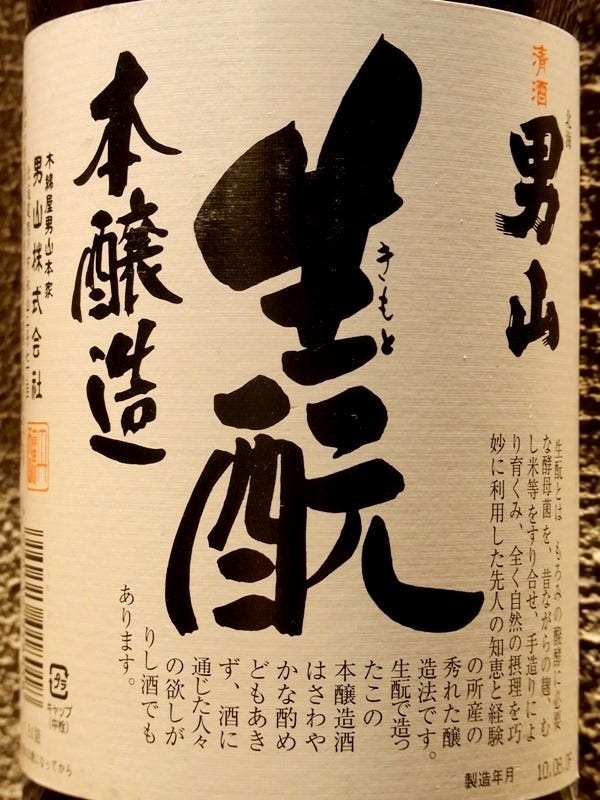 清酒
北海
男山
生酛
きもと
本醸造
木綿屋男山本家
男山株式会社
生酛とは、もろみの醗酵に必要
な酵母菌を、昔ながらの麹、む
し米等をすり合せ、手造りによ
り育くみ、全く自然の摂理を巧
妙に利用した先人の知恵と経験
の所産の
秀れた醸
造法です。
生酛で造っ
たこの
本醸造酒
はさわや
かな酌め
どもあき
ず、酒に
通じた人々
の欲しが
りし酒でも
あります。
キャップ
(中栓)
製造年月